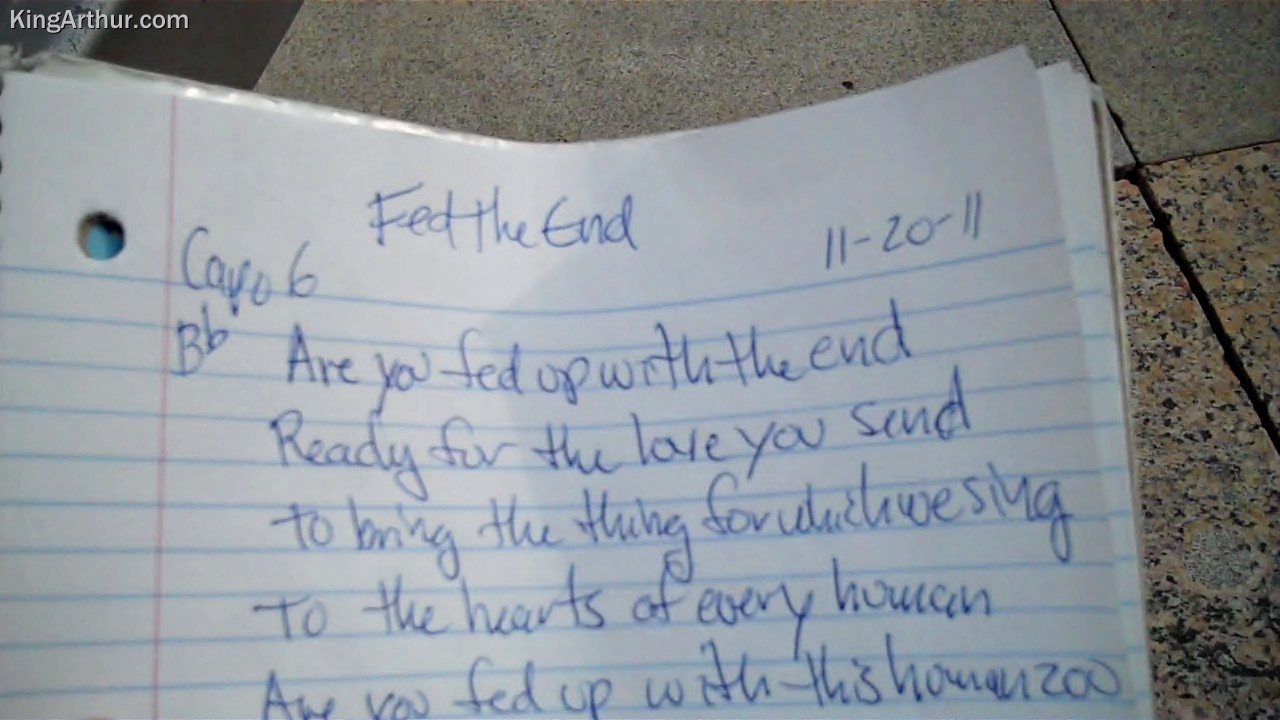 KingArthur.com
Fed the End
11-20-11
Capo 6
Bb Are you fed up with the end
Ready for the love you send
to bring the thing for which we sing
To the hearts of every human
Are you fed up with this human zoo